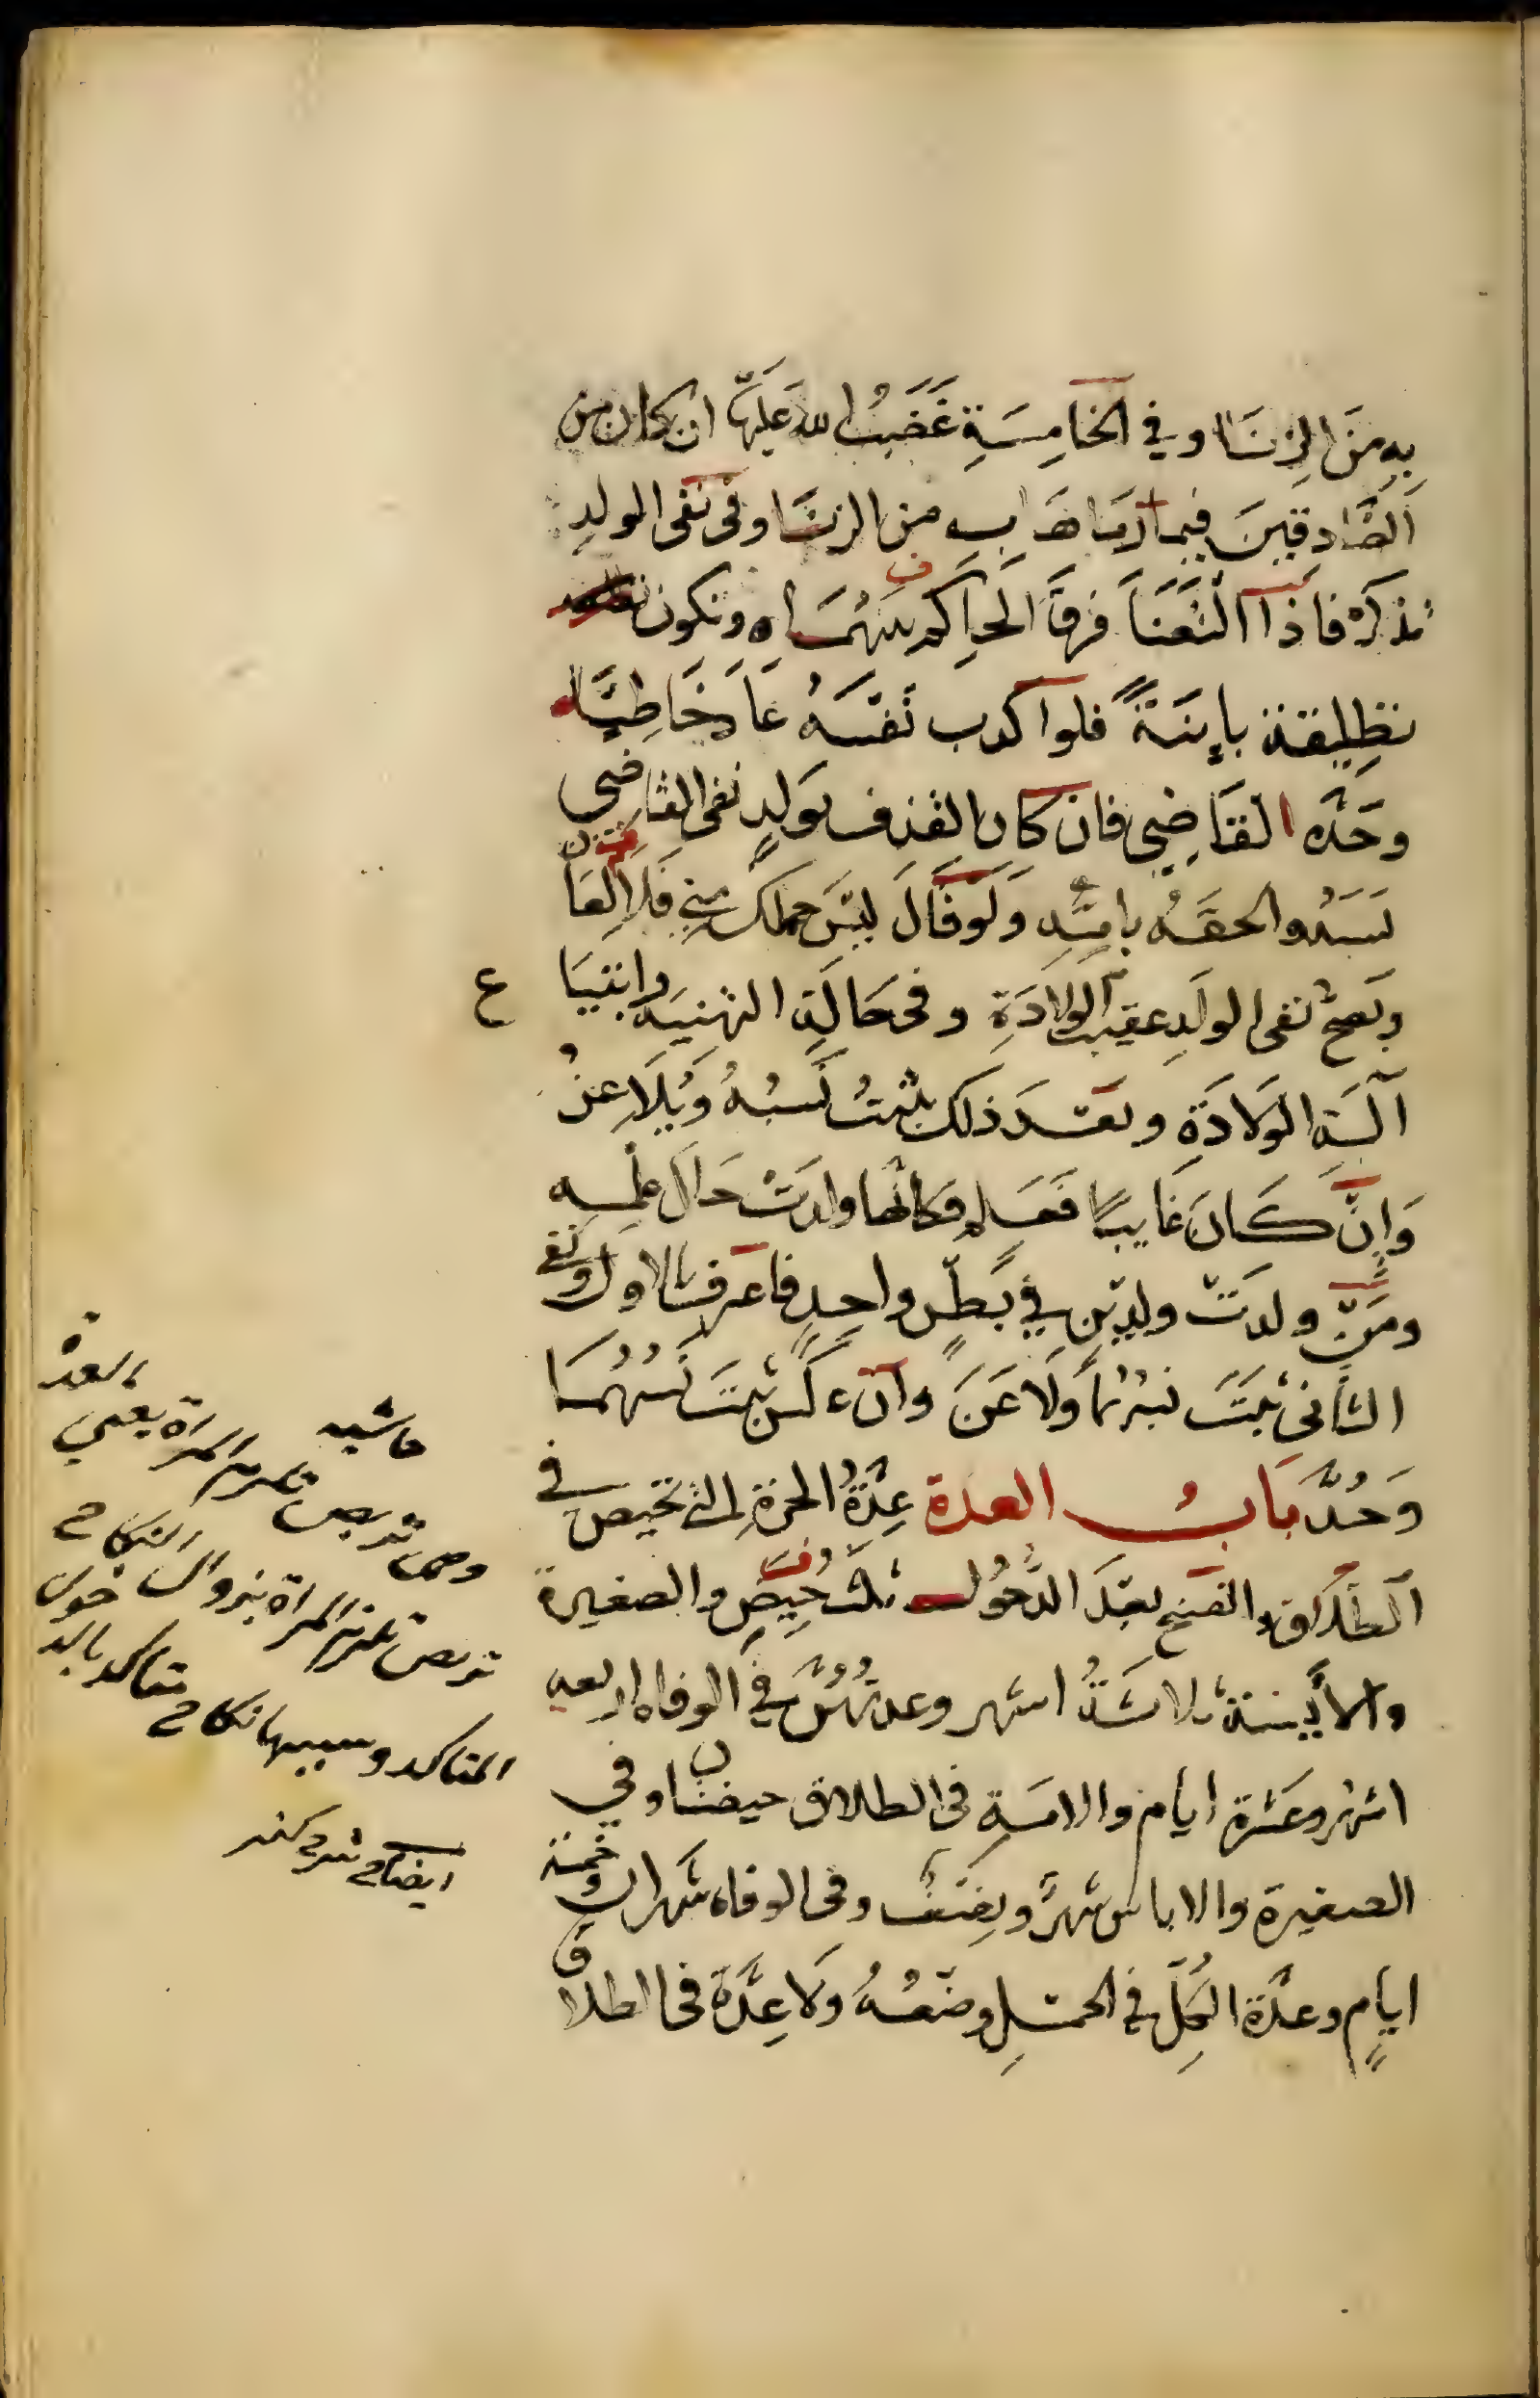 بِهِ مِنَ الزِنَا وفي الخامِسَةِ غَضَبُ اللهِ عَلَيهَا ان كان من
الصَّادِقينَ فيما رمَاهَا به من الزنَا وفى نفى الولدِ
تذكره فاذا التَعَنَا فرقَ الحَاكم بينهمَا وتكون
تطليقة باينَةً فلو اكدب نفسَهُ عَادَ خَاطِبًا
وحَدّه القَاضِي فان كان القذف بولدٍ نفى القاضى
نسَبَهُ والحقَهُ بامِّهِ وَلَو قَالَ ليسَ حملك مِنِي فَلَا لِعَانَ
ويَصحّ نفى الولَدِ عقيب الولادَةِ وفى حَالَةِ التهنية وابتيَاع
آلَةِ الوَلادَةِ وبعدَ ذلك يثبتُ نَسَبُهُ وَيُلَاعِنُ
وَاِنْ كَانَ غَايبًا فَعَلِمَ فكانها ولدَتْ حَالَ عِلمِه
ومَنْ ولدَتْ ولدينِ في بَطنٍ واحِدٍ فاعترف بالاول ونفى
الثانى ثبَتَ نسبُهُمَا وَلَاعَنَ وان عكس ثبتَ نسبُهُمَا
وَحُدَّ بَابُ العدة عِدّةُ الحرّةِ التي تحيض في
الطلاق والفسخ بعدَ الدخُول ثلث حِيَضٍ والصغيرة
والآيسة ثلاثَةُ اشهر وعدتهُنّ في الوفاه اربعه
اشهر وعَشرة ايام والامَةِ فى الطلاق حيضتان وفي
الصغيرة والاياس شهرٌ ونِصفٌ وفى الوفاه شهران وخمسة
ايامٍ وعدّة الكلّ في الحمل وضعُهُ وَلَا عِدَّة فى الطلاق
حاشيه العدة
وهى تربص المراة يعني
تربص المراة بزوال النكاح
المتاكد وسببها نكاح متاكد بالدخول
ايضاح شرح كنز